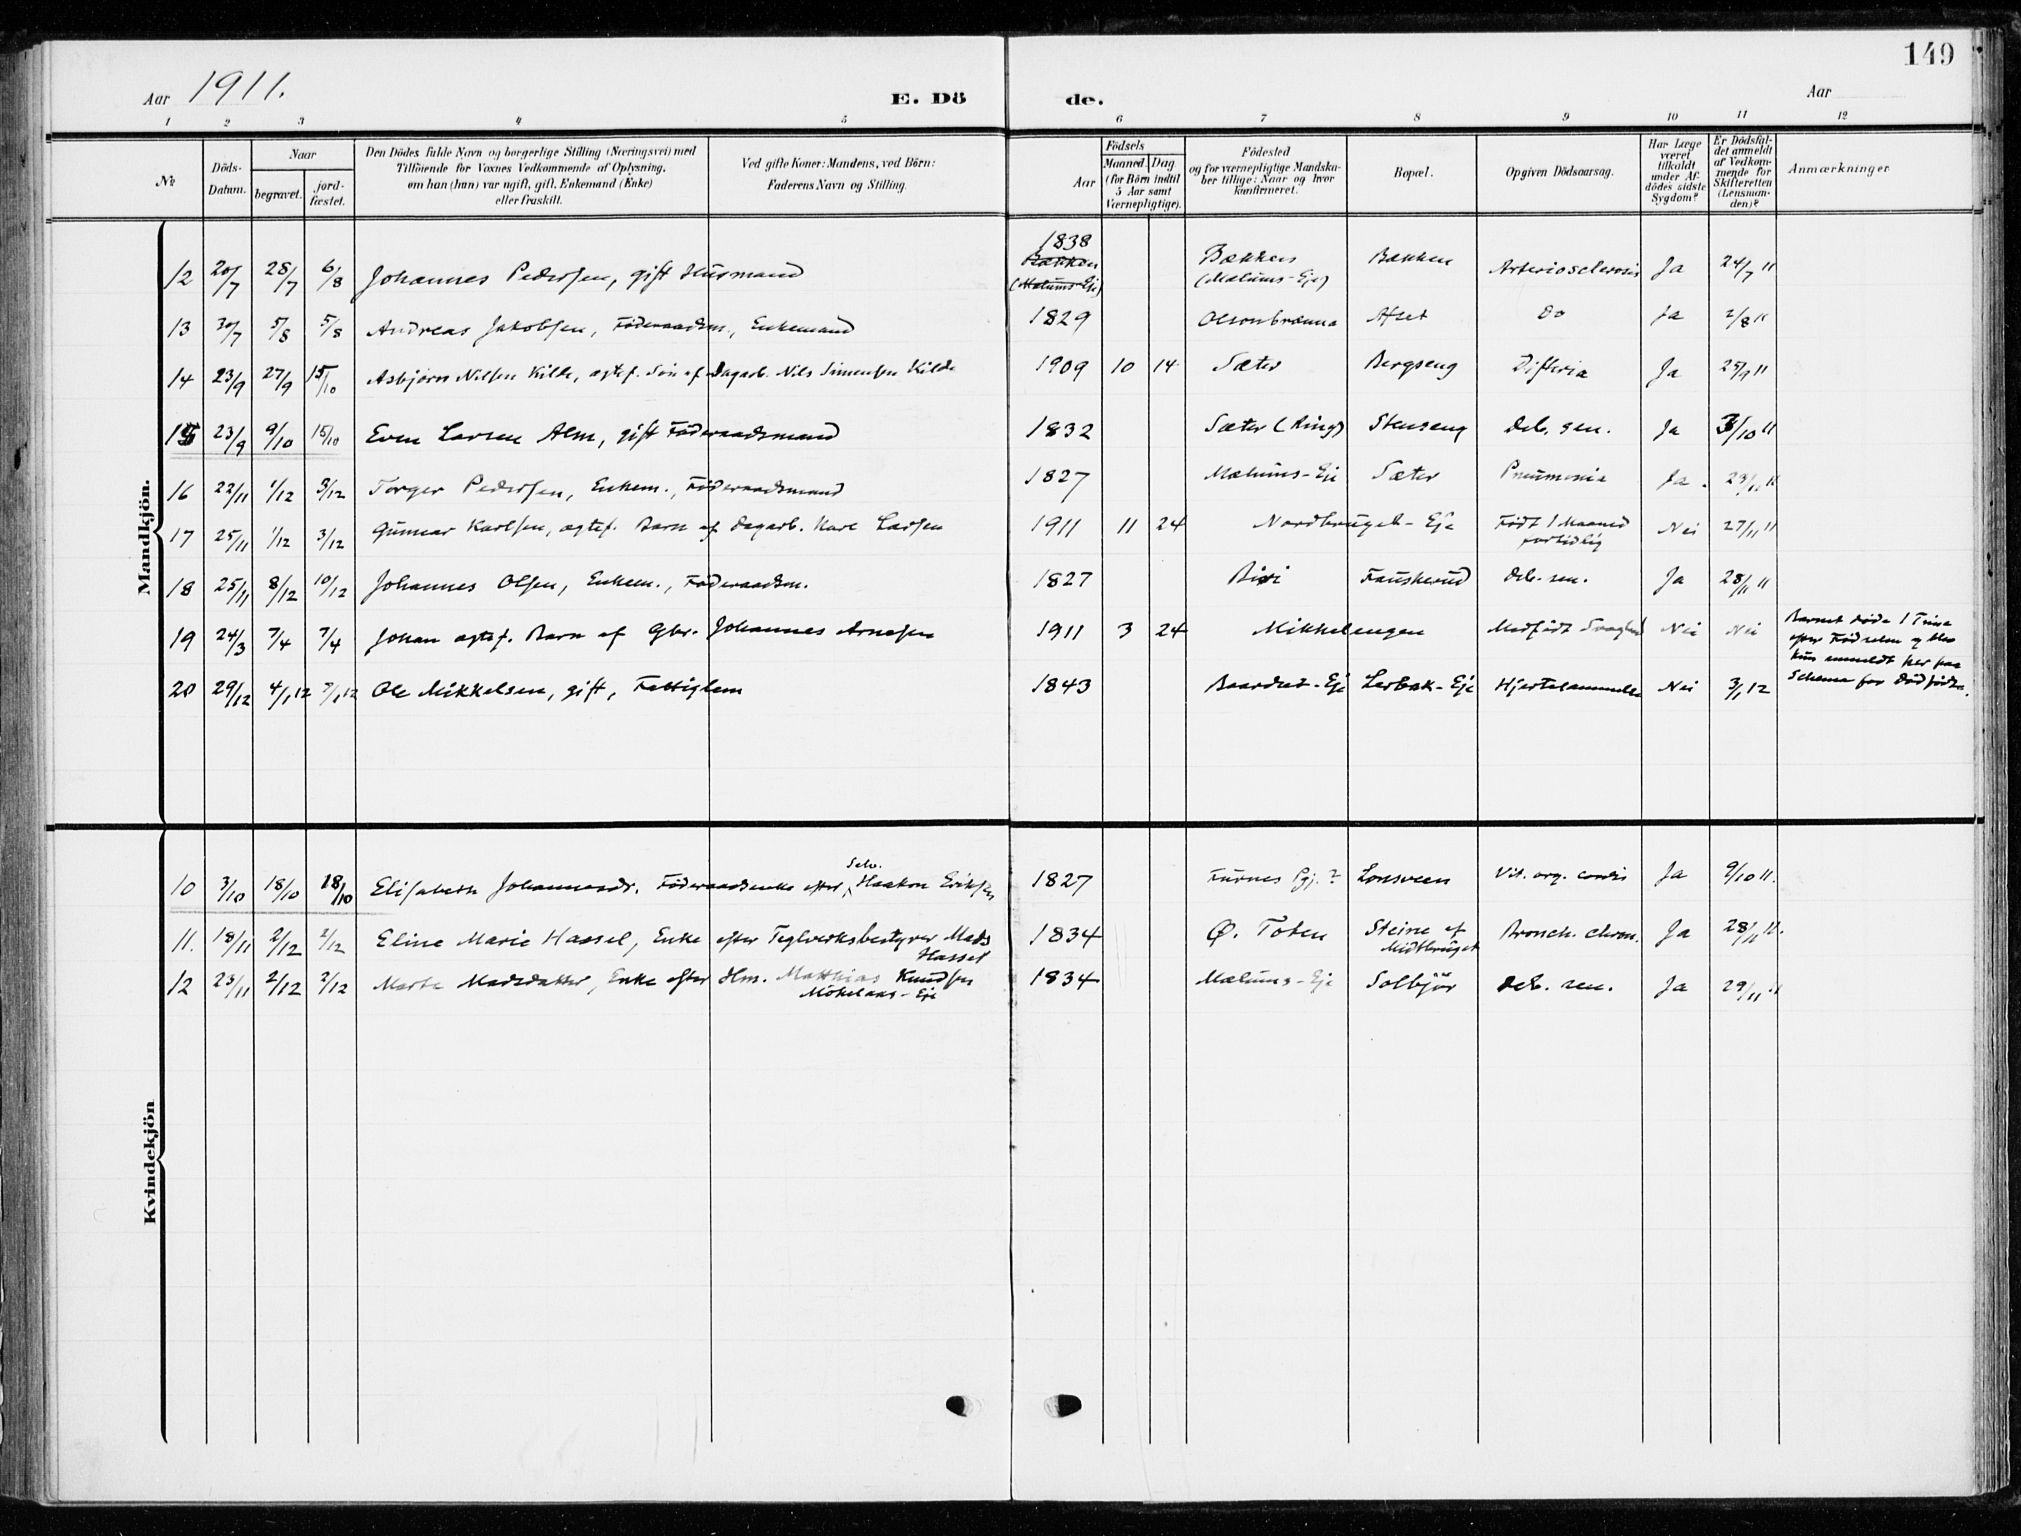 149
Aar 1911. E. Dö de. Aar
1 2 3 4 5 6 7 8 9 10 11 12
№
Döds-Datum.
Naar
begravet.
jord-fæstet.
Den Dödes fulde Navn og borgerlige Stilling (Næringsvei) med
Tilföiende for Voxnes Vedkommende af Oplysning,
om han (hun) var ugift, gift, Enkemand (Enke)
eller fraskilt.
Ved gifte Koner: Mandens, ved Börn:
Faderens Navn og Stilling.
Födsels
Aar
Maaned. Dag
(for Börn indtil
5 Aar samt
Værnepligtige).
Födested
og for værnepligtige Mandska-
ber tillige: Naar og hvor
konfirmeret.
Bopæl.
Opgiven Dödsaarsag.
Har Læge
været
tilkaldt
under Af-
dödes sidste
Sygdom?
Er Dödsfal-
det anmeldt
af Vedkom-
mende for
Skifteretten
(Lensman-
den)?
Anmærkninger
Mandkjön.
12 20/7 28/7 6/8 Johannes Pedersen, gift Husmand 1838 Bækken (Mælums-Eje) Bækken (Mælums-Eje) Bækken Arteriosclerosis Ja 24/7 11
13 30/7 5/8 5/8 Andreas Jakobsen, Föderaadsm., Enkemand 1829 Olsonbrænna Afset Do Ja 2/8 11
14 23/9 27/9 15/10 Asbjörn Nilsen Kilde, ægtef. Sön af Dagarb. Nils Simensen Kilde 1909 10 14 Sæter Bergseng Difteria Ja 25/9 11
15 23/9 9/10 15/10 Even Larsen Alm, gift Föderaadsmand 1832 Sæter (Ring) Stenseng Deb. sen. Ja 3/10 11
16 22/11 1/12 3/12 Torger Pedersen, Enkem., Föderaadsmand 1827 Mælums-Eje Sæter Pneumonia Ja. 23/11 11
17 25/11 1/12 3/12 Gunnar Karlsen, ægtef. Barn af Dagarb. Karl Larsen 1911 11 24 Nordbruget-Eje Födt 1 Maaned fortidlig Nei 27/11 11
18 25/11 8/12 10/12 Johannes Olsen, Enkem., Föderaadsm. 1827 Biri Fauskerud Deb. sen. Ja 28/11 11
19 24/3 7/4 7/4 Johan ægtef. Barn af Gbr. Johannes Arnesen 1911 3 24 Mikkelengen Medfödt Svaghed Nei Nei
Barnet döde 1 Time
efter Födselen og blev
kun anmeldt her paa
Schema for Dödfödte.
20 29/12 4/1 12 7/1 12 Ole Mikkelsen, gift, Fattiglem 1843 Baardset-Eje Lerbak-Eje Hjertelammelse Nei 3/1 12
Kvindekjön
10 3/10 18/10 18/10 Elisabeth Johannesdr. Föderaadsenke efter Selv. Haakon Eriksen 1827 Furnes Pgj.? Lonsveen Vit. org. cordis Ja 9/10 11.
11. 18/11 2/12 2/12 Eline Marie Hassel, Enke efter Teglverksbestyrer Mads Hassel 1834 Ø. Toten Steine af Midtbruget Bronch. chron. Ja 28/11 11.
12 23/11 2/12 2/12 Marte Madsdatter, Enke efter Hm. Matthias Knudsen Mökelaas-Eje 1834 Mælums-Eje Solbjör Deb. sen. Ja 29/11 11